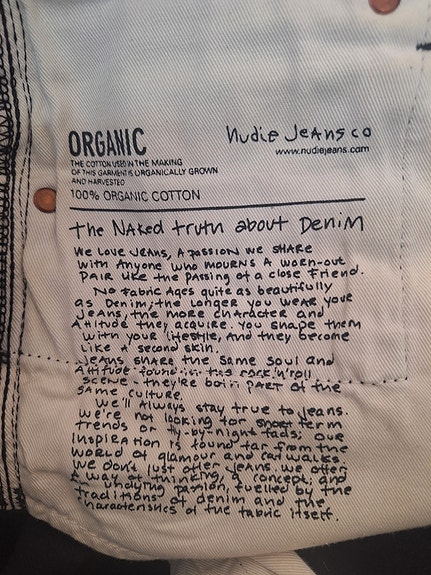 ORGANIC
THE COTTON USED IN THE MAKING
OF THIS GARMENT IS ORGANICALLY GROWN
AND HARVESTED
100% ORGANIC COTTON
Nudie Jeans co
www.nudiejeans.com
The Naked truth about Denim
We Love Jeans, A passion we share
with Anyone who mourns A worn-out
pair like the passing of a close friend.
No fabric Ages quite as beautifully
as Denim; the longer you wear your
Jeans, the more character and
Attitude they acquire. You shape them
with your lifestyle, And they become
Like a second skin.
Jeans share the same soul and
Attitude found in the rock'n'roll
scene - they're both part of the
same culture.
we'll always stay true to jeans.
we're not looking for short term
trends or fly-by-night fads; our
inspiration is found far from the
world of glamour and catwalks.
we don't just offer jeans. we offer
a way of thinking, a concept, and
undying passion, fuelled by the
traditions of denim and the
characteristics of the fabric itself.